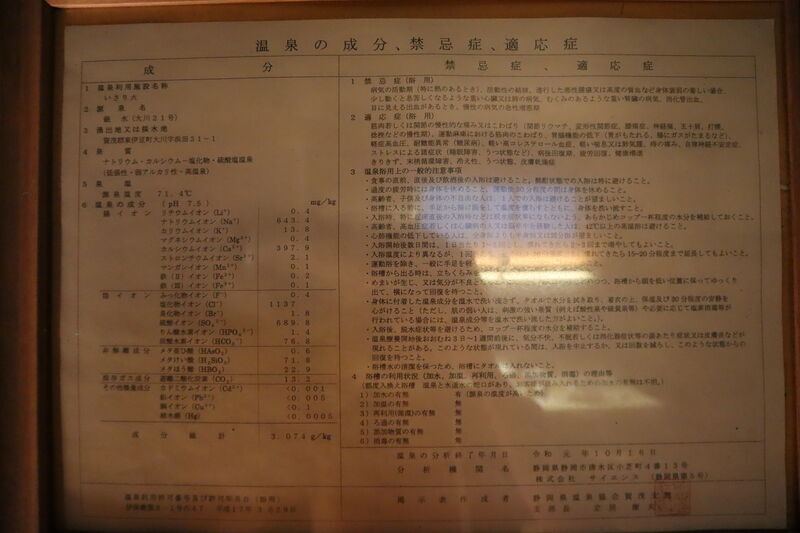 温泉の成分、禁忌症、適応症
成分
1 温泉利用施設名称
いさり火
2 源泉名
磯水(大川21号)
3 湧出地又は採水地
賀茂郡東伊豆町大川字湯田31-1
4 泉質
ナトリウム・カルシウムー塩化物・硫酸塩温泉
(低張性・弱アルカリ性・高温泉)
5 泉温
源泉温度 71.4℃
6 温泉の成分 (pH 7.5) mg/kg
陽イオン リチウムイオン(Li⁺) 0.4
ナトリウムイオン(Na⁺) 643.4
カリウムイオン(K⁺) 13.8
マグネシウムイオン(Mg²⁺) 0.4
カルシウムイオン(Ca²⁺) 397.9
ストロンチウムイオン(Sr²⁺) 2.1
マンガンイオン(Mn²⁺) 0.1
鉄(Ⅱ)イオン(Fe²⁺) 0.2
鉄(Ⅲ)イオン(Fe³⁺) 0.1
陰イオン ふっ化物イオン(F⁻) 0.4
塩化物イオン(Cl⁻) 1137
臭化物イオン(Br⁻) 1.8
硫酸イオン(SO₄²⁻) 689.8
りん酸水素イオン(HPO₄²⁻) 1.4
炭酸水素イオン(HCO₃⁻) 76.8
非解離成分 メタ亜ひ酸(HAsO₂) 0.6
メタけい酸(H₂SiO₃) 71.8
メタほう酸(HBO₂) 22.9
溶存ガス成分 遊離二酸化炭素(CO₂) 13.2
その他微量成分 カドミウムイオン(Cd²⁺) <0.001
鉛イオン(Pb²⁺) <0.005
銅イオン(Cu²⁺) <0.1
総水銀(Hg) <0.0005
成分総計 3.074g/kg
禁忌症、適応症
1 禁忌症(浴用)
病気の活動期(特に熱のあるとき)、活動性の結核、進行した悪性腫瘍又は高度の貧血など身体衰弱の著しい場合、
少し動くと息苦しくなるような重い心臓又は肺の病気、むくみのあるような重い腎臓の病気、消化管出血、
目に見える出血があるとき、慢性の病気の急性増悪期
2 適応症(浴用)
筋肉若しくは関節の慢性的な痛み又はこわばり(関節リウマチ、変形性関節症、腰痛症、神経痛、五十肩、打撲、
捻挫などの慢性期)、運動麻痺における筋肉のこわばり、胃腸機能の低下(胃がもたれる、腸にガスがたまるなど)、
軽症高血圧、耐糖能異常(糖尿病)、軽い高コレステロール血症、軽い喘息又は肺気腫、痔の痛み、自律神経不安定症、
ストレスによる諸症状(睡眠障害、うつ状態など)、病後回復期、疲労回復、健康増進
きりきず、末梢循環障害、冷え性、うつ状態、皮膚乾燥症
3 温泉浴用上の一般的注意事項
・食事の直前、直後及び飲酒後の入浴は避けること。酩酊状態での入浴は特に避けること。
・過度の疲労時には身体を休めること。運動後30分程度の間は身体を休めること。
・高齢者、子供及び身体の不自由な人は、1人での入浴は避けることが望ましいこと。
・浴槽に入る前に、手足から掛け湯をして温度に慣らすとともに、身体を洗い流すこと。
・入浴時、特に起床直後の入浴時などは脱水状態等にならないよう、あらかじめコップ一杯程度の水分を補給しておくこと。
42℃以上の高温浴は避けること。
・心肺機能の低下している人は、
・入浴開始後数日間は、1日当たり1~
・入浴温度により異なるが、
15~20分程度まで延長してもよいこと。
・運動浴を除き、一般に手足を
・浴槽から出る時は、立ちくらみ
・めまいが生じ、又は気分が不良
浴槽から頭を低い位置に保ってゆっくり
出て、横になって回復を待つこと。
・身体に付着した温泉成分を温水で洗い流さず、タオルで水分を拭き取り、着衣の上、保温及び30分程度の安静を
心がけること
・入浴後、脱水症状等を避けるため、コップ一杯程度の水分を補給すること。
・温泉療養開始後おおむね3日~1週間前後に、気分不快、不眠若しくは消化器症状等の湯あたり症状又は皮膚炎などが
現れることがある。このような状態が現れている間は、入浴を中止するか、又は回数を減らし、このような状態からの
回復を待つこと。
・浴槽水の清潔を保つため、浴槽にタオルは入れないこと。
4 浴槽の利用状況(加水、加温、
1)加水の有無 有(源泉の温度が高いため)
2)加温の有無 無
3)再利用(循環)の有無 無
4)ろ過の有無 無
5)添加物質の有無 無
6)消毒の有無 無
温泉の分析終了年月日 令和元年10月16日
分析機関名 静岡県静岡市清水区小芝町4番13号
株式会社 サイエンス (静岡県第5号)
掲示表作成者 静岡県温泉協会賀茂支部
支部長
温泉利用許可番号及び許可年月日(浴用)
平成17年3月29日